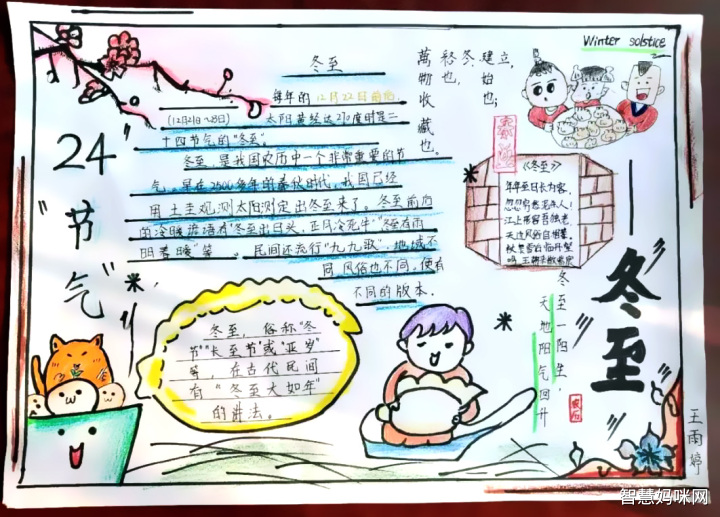 Winter solstice
24
节
气
冬至
每年的 12月22日前后
(12月21日~23日) 太阳黄经达270度时是二
十四节气的"冬至"。
冬至,是我国农历中一个非常重要的节
气。早在2500多年的春秋时代,我国已经
用土圭观测太阳测定出冬至来了。冬至前后
的冷暖谚语有"冬至出日头,正月冻死牛""冬至有雨
明春暖"等。民间还流行"九九歌",地域不
同,风俗也不同,便有
不同的版本.
冬至,俗称"冬
节""长至节"或"亚岁"
等,在古代民间
有"冬至大如年"
的讲法。
建立,始也;
冬,
萬物收藏也。
《冬至》
年年至日长为客,
忽忽穷愁泥杀人!
江上形容吾独老
天边风俗自相
冬至一阳生
天地阳气回升
冬至
王雨婷
智慧妈咪网